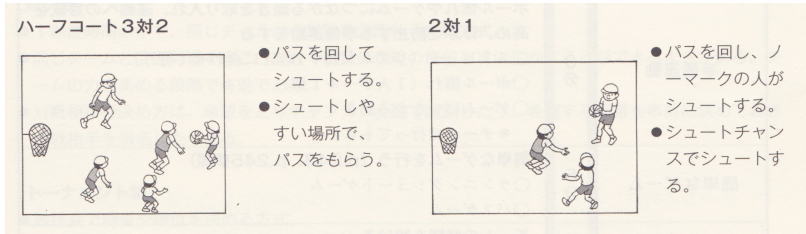 ハーフコート3対2
●パスを回して
シュートする。
●シュートしや
すい場所で、
パスをもらう。
2対1
●パスを回し、ノ
ーマークの人が
シュートする。
●シュートチャン
スでシュートす
る。